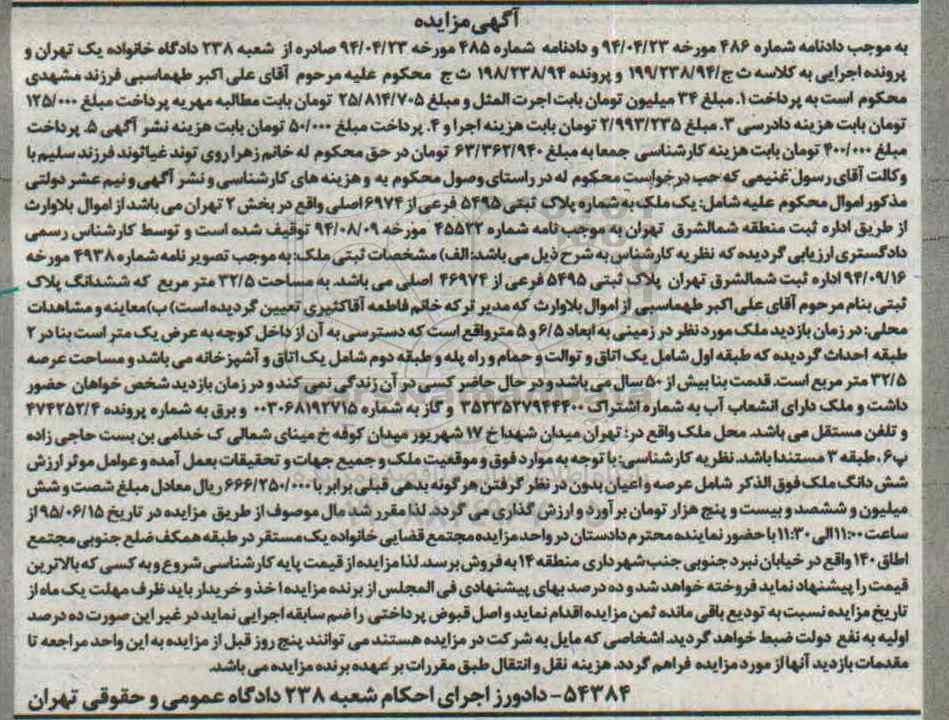 آگهی مزایده
به موجب دادنامه شماره ۴۸۶ مورخه ۹۴/۰۴/۲۳ و دادنامه شماره ۴۸۵ مورخه ۹۴/۰۴/۲۳ صادره از شعبه ۲۳۸ دادگاه خانواده یک تهران و
پرونده اجرایی به کلاسه ث ج/۱۹۹/۲۳۸/۹۴ و پرونده ۱۹۸/۲۳۸/۹۴ ث ج محکوم علیه مرحوم آقای علی اکبر طهماسبی فرزند مشهدی
محکوم است به پرداخت ۱. مبلغ ۳۴ میلیون تومان بابت اجرت المثل و مبلغ ۲۵/۸۱۴/۷۰۵ تومان بابت مطالبه مهریه پرداخت مبلغ ۱۲۵/۰۰۰
تومان بابت هزینه دادرسی ۳. مبلغ ۲/۹۹۳/۲۳۵ تومان بابت هزینه اجرا و ۴. پرداخت مبلغ ۵۰/۰۰۰ تومان بابت هزینه نشر آگهی ۵. پرداخت
مبلغ ۴۰۰/۰۰۰ تومان بابت هزینه کارشناسی جمعا به مبلغ ۶۳/۳۶۲/۹۴۰ تومان در حق محکوم له خانم زهرا روی توند غیاثوند فرزند سلیم با
وکالت آقای رسول غنیمی که حب درخواست محکوم له در راستای وصول محکوم به و هزینه های کارشناسی و نشر آگهی و نیم عشر دولتی
مذکور اموال محکوم علیه شامل: یک ملک به شماره پلاک ثبتی ۵۴۹۵ فرعی از ۶۹۷۴ اصلی واقع در بخش ۲ تهران می باشد از اموال بلاوارث
از طریق اداره ثبت منطقه شمالشرق تهران به موجب نامه شماره ۴۵۵۲۲ مورخه ۹۴/۰۸/۰۹ توقیف شده است و توسط کارشناس رسمی
دادگستری ارزیابی گردیده که نظریه کارشناس به شرح ذیل می باشد: الف) مشخصات ثبتی ملک: به موجب تصویر نامه شماره ۴۹۳۸ مورخه
۹۴/۰۹/۱۶ اداره ثبت شمالشرق تهران پلاک ثبتی ۵۴۹۵ فرعی از ۴۶۹۷۴ اصلی می باشد. به مساحت ۳۲/۵ متر مربع که ششدانگ پلاک
ثبتی بنام مرحوم آقای علی اکبر طهماسبی از اموال بلاوارث که مدیر ترکه خانم فاطمه آقاکثیری تعیین گردیده است) ب) معاینه و مشاهدات
محلی: در زمان بازدید ملک مورد نظر در زمینی به ابعاد ۶/۵ و ۵ متر واقع است که دسترسی به آن از داخل کوچه به عرض یک متر است بنا در ۲
طبقه احداث گردیده که طبقه اول شامل یک اتاق و توالت و حمام و راه پله و طبقه دوم شامل یک اتاق و آشپزخانه می باشد و مساحت عرصه
۳۲/۵ متر مربع است. قدمت بنا بیش از ۵۰ سال می باشد و در حال حاضر کسی در آن زندگی نمی کند و در زمان بازدید شخص خواهان حضور
داشت و ملک دارای انشعاب آب به شماره اشتراک ۲۵۲۳۵۲۷۹۴۴۴۰۰ و گاز به شماره ۰۰۳۰۶۸۱۹۲۷۱۵ و برق به شماره پرونده ۴۷۴۲۵۲/۴
و تلفن مستقل می باشد. محل ملک واقع در: تهران میدان شهدا خ ۱۷ شهریور میدان کوفه خ مینای شمالی ک خدامی بن بست حاجی زاده
پ۶، طبقه ۳ مستندا باشد. نظریه کارشناسی: با توجه به موارد فوق و موقعیت ملک و جمیع جهات و تحقیقات بعمل آمده و عوامل موثر ارزش
شش دانگ ملک فوق الذکر شامل عرصه و اعیان بدون در نظر گرفتن هرگونه بدهی قبلی برابر با ۶۶۶/۲۵۰/۰۰۰ ریال معادل مبلغ شصت و شش
میلیون و ششصد و بیست و پنج هزار تومان برآورد و ارزش گذاری می گردد. لذا مقرر شد مال موصوف از طریق مزایده در تاریخ ۹۵/۰۶/۱۵ از
ساعت ۱۱:۰۰ الی ۱۱:۳۰ با حضور نماینده محترم دادستان در واحد مزایده مجتمع قضایی خانواده یک مستقر در طبقه همکف ضلع جنوبی مجتمع
اطاق ۱۴۰ واقع در خیابان نبرد جنوبی جنب شهرداری منطقه ۱۴ به فروش برسد. لذا مزایده از قیمت پایه کارشناسی شروع و به کسی که بالاترین
قیمت را پیشنهاد نماید فروخته خواهد شد و ده درصد بهای پیشنهادی فی المجلس از برنده مزایده اخذ و خریدار باید ظرف مهلت یک ماه از
تاریخ مزایده نسبت به تودیع باقی مانده ثمن مزایده اقدام نماید و اصل قبوض پرداختی را ضم سابقه اجرایی نماید در غیر این صورت ده درصد
اولیه به نفع دولت ضبط خواهد گردید. اشخاصی که مایل به شرکت در مزایده هستند می توانند پنج روز قبل از مزایده به این واحد مراجعه تا
مقدمات بازدید آنها از مورد مزایده فراهم گردد. هزینه نقل و انتقال طبق مقررات بر عهده برنده مزایده می باشد.
۵۴۳۸۴- دادورز اجرای احکام شعبه ۲۳۸ دادگاه عمومی و حقوقی تهران